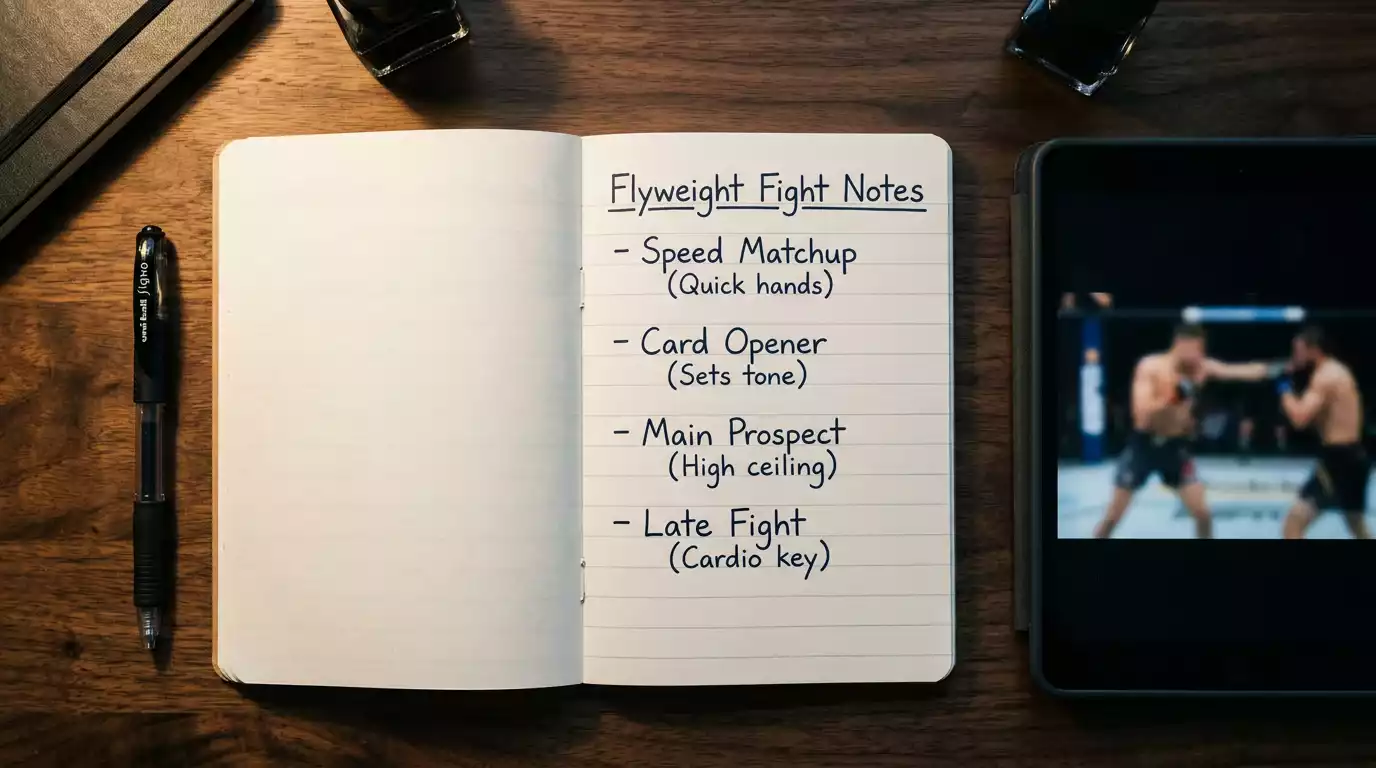 Flyweight Fight Notes
- Speed Matchup
(Quick hands)
- Card Opener
(Sets tone)
- Main Prospect
(High ceiling)
- Late Fight
(Cardio key)
uni-ball signo